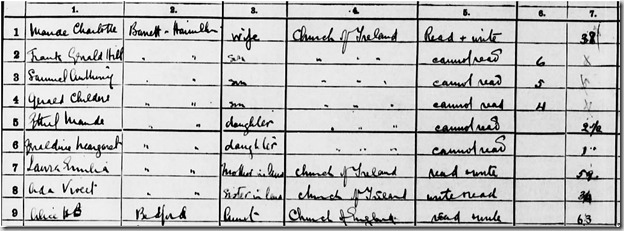 1. 2. 3. 4. 5. 6. 7.
1 Maude Charlotte Barrett-Hamilton wife Church of Ireland Read + write 38
2 Frank Gerald Hill " " son " " " cannot read 6
3 Samuel Anthony " " son " " " cannot read 5
4 Gerald Childers " " son " " " cannot read 4
5 Ethel Maude " " daughter " " " cannot read 2½
6 Geraldine Margaret " " daughter " " " cannot read
7 Laura Emilia " " Mother in law Church of Ireland read write 59
8 Ada Violet " " Sister in law Church of Ireland write read
9 Alice H B Bedford Aunt Church of England read write 63